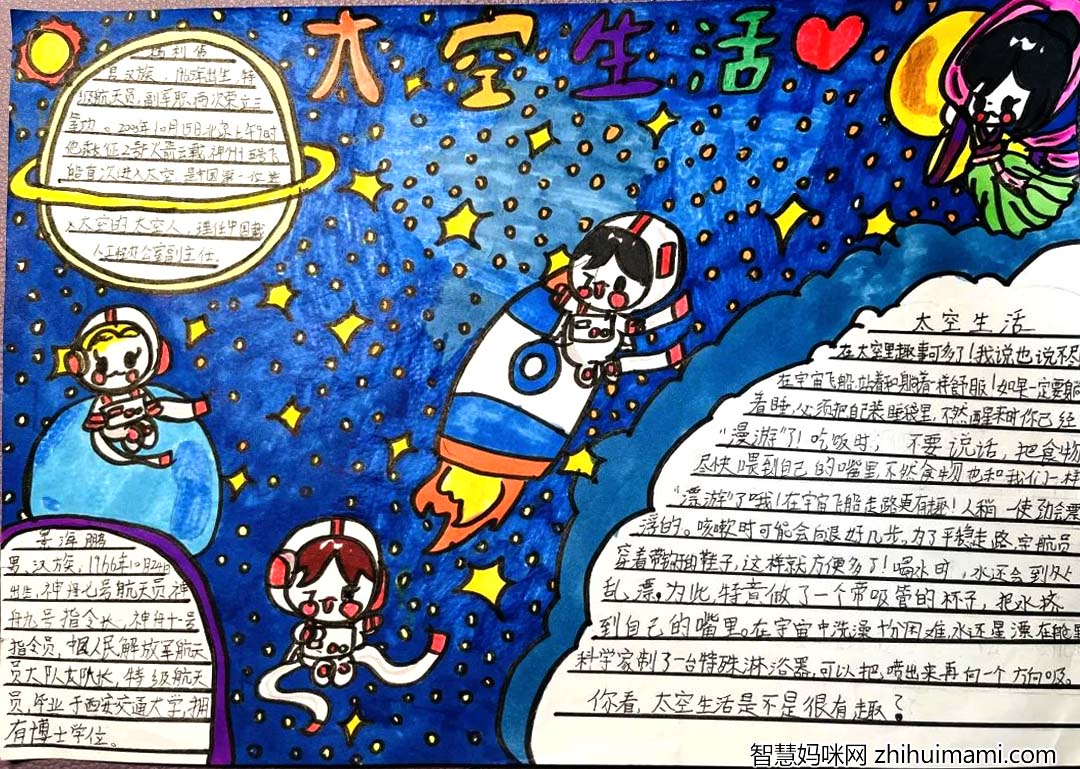 太空生活
杨利伟
男,汉族,1965年出生,特
级航天员,副军职,两次荣立三
等功。2003年10月15日北京上午9时
他乘征2号火箭运载神州五号飞
船首次进入太空,是中国第一位进
入太空的太空人,现任中国载
人工程办公室副主任。
景海鹏
男、汉族,1966年10月24日
出生,神洲七号航天员神
舟九号指令长、神舟十号
指令员,中国人民解放军航天
员大队大队长,特级航天
员,毕业于西安交通大学,拥
有博士学位。
太空生活
在太空里趣事可多了!我说也说不尽
在宇宙飞船,站着和躺着一样舒服!如果一定要躺
着睡,必须把自己装睡袋里,不然醒来时你己经
“漫游”了!吃饭时;不要说话,把食物
尽快喂到自己的嘴里不然食物也和我们一样
“漂游”了哦!在宇宙飞船走路更有趣!人稍一使劲会漂
浮的。咳嗽时可能会向退好几步。为了平稳走路,宇航员
穿着带的鞋子,这样就方便多了!喝水时,水还会到处
乱漂,为此,特意做了一个带吸管的杯子,把水挤
到自己的嘴里。在宇宙中洗澡十分困难,水还是漂在舱里
科学家制了一台特殊淋浴器,可以把喷出来再向一个方向吸。
你看,太空生活是不是很有趣?
智慧妈咪网 zhihuimami.com